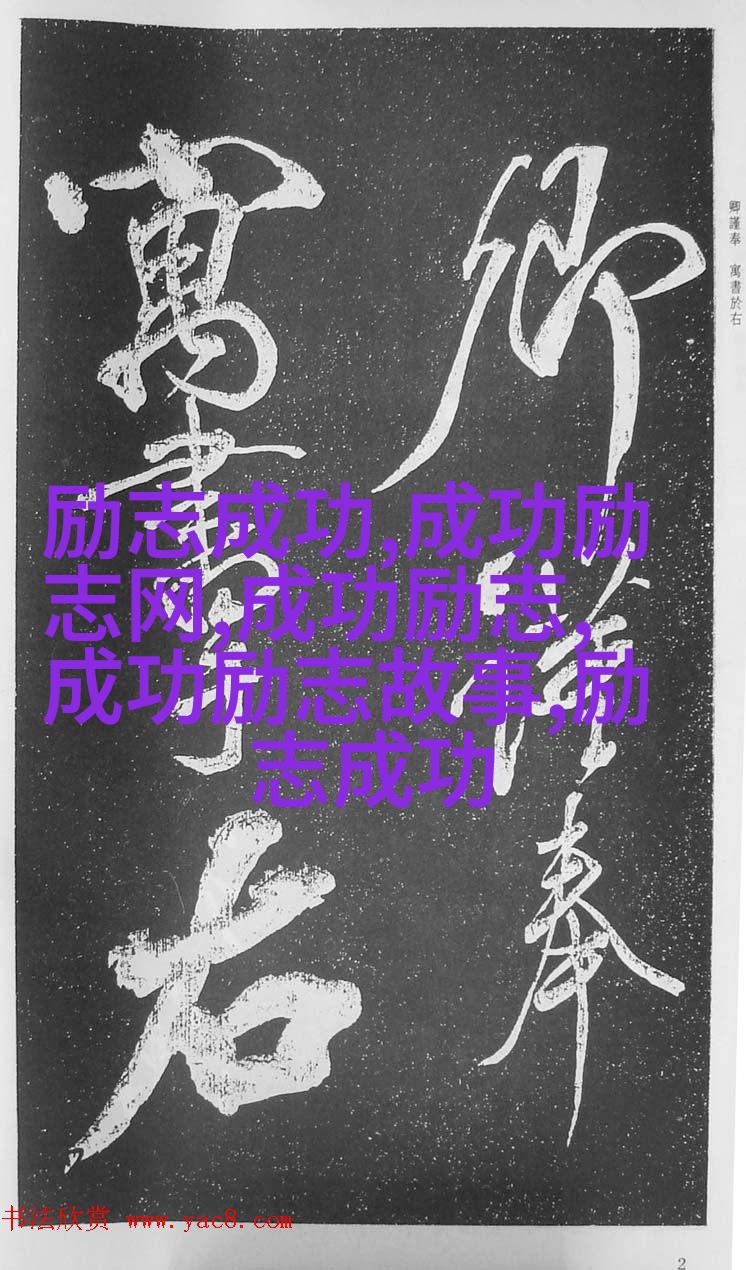 卿謹奉
寓書於右
卿謹奉 寓書於右
励志成功,成功励
志网,成功励志,
成功励志故事,励
志成功
书法欣赏 www.yac8.com
2